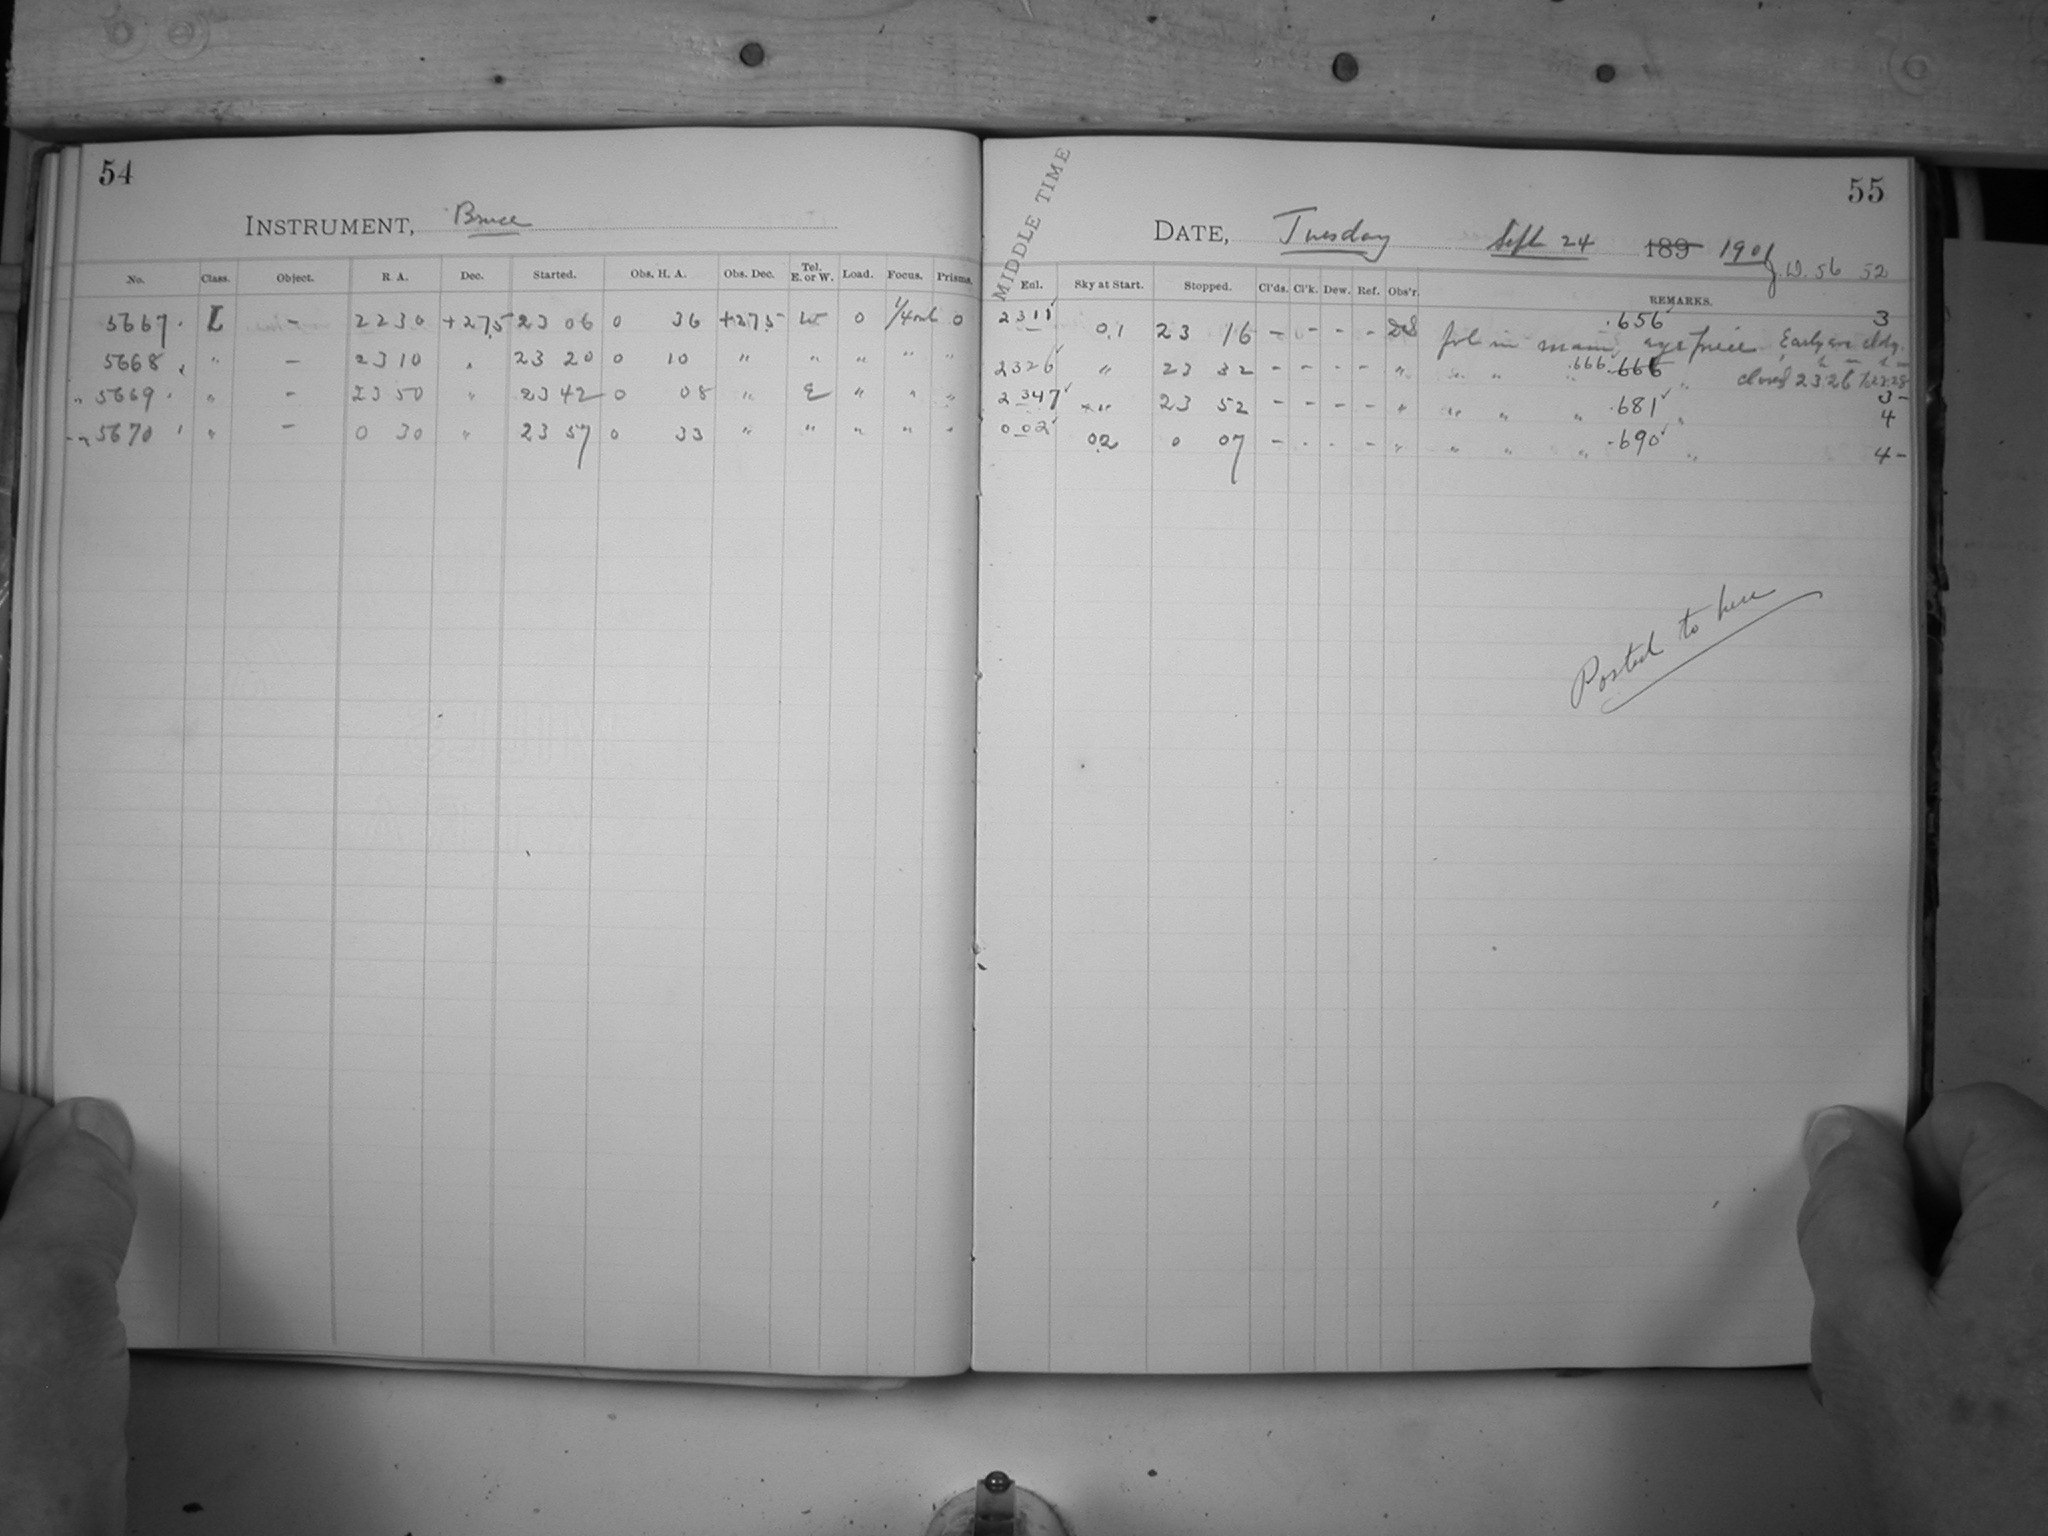 54
INSTRUMENT, Bruce
No. Class. Object. R. A. Dec. Started. Obs. H. A. Obs. Dec. Tel. E. or W. Load. Focus. Prisms.
5667 L – 22 30 +27.5 23 06 0 36 +27.5 W 0 1/4 out 0
5668 " – 23 10 " 23 20 0 10 " " " " "
" 5669 " – 23 50 " 23 42 0 08 " E " " "
" 5670 " – 0 30 " 23 57 0 33 " " " " "
55
MIDDLE TIME
DATE, Tuesday Sept 24 189 1901
J.D. 56 52
Enl. Sky at Start. Stopped. Cl'ds. Cl'k. Dew. Ref. Obs'r. REMARKS.
23 11 0.1 23 16 – – – – .656 3
23 26 " 23 32 – – – – " " .666 .666 " closed 23 26 to 23 28 3-
23 47 " 23 52 – – – – " " " " .681 " 4
0 02 02 0 07 – – – – " " " " .690 " 4-
Posted to here